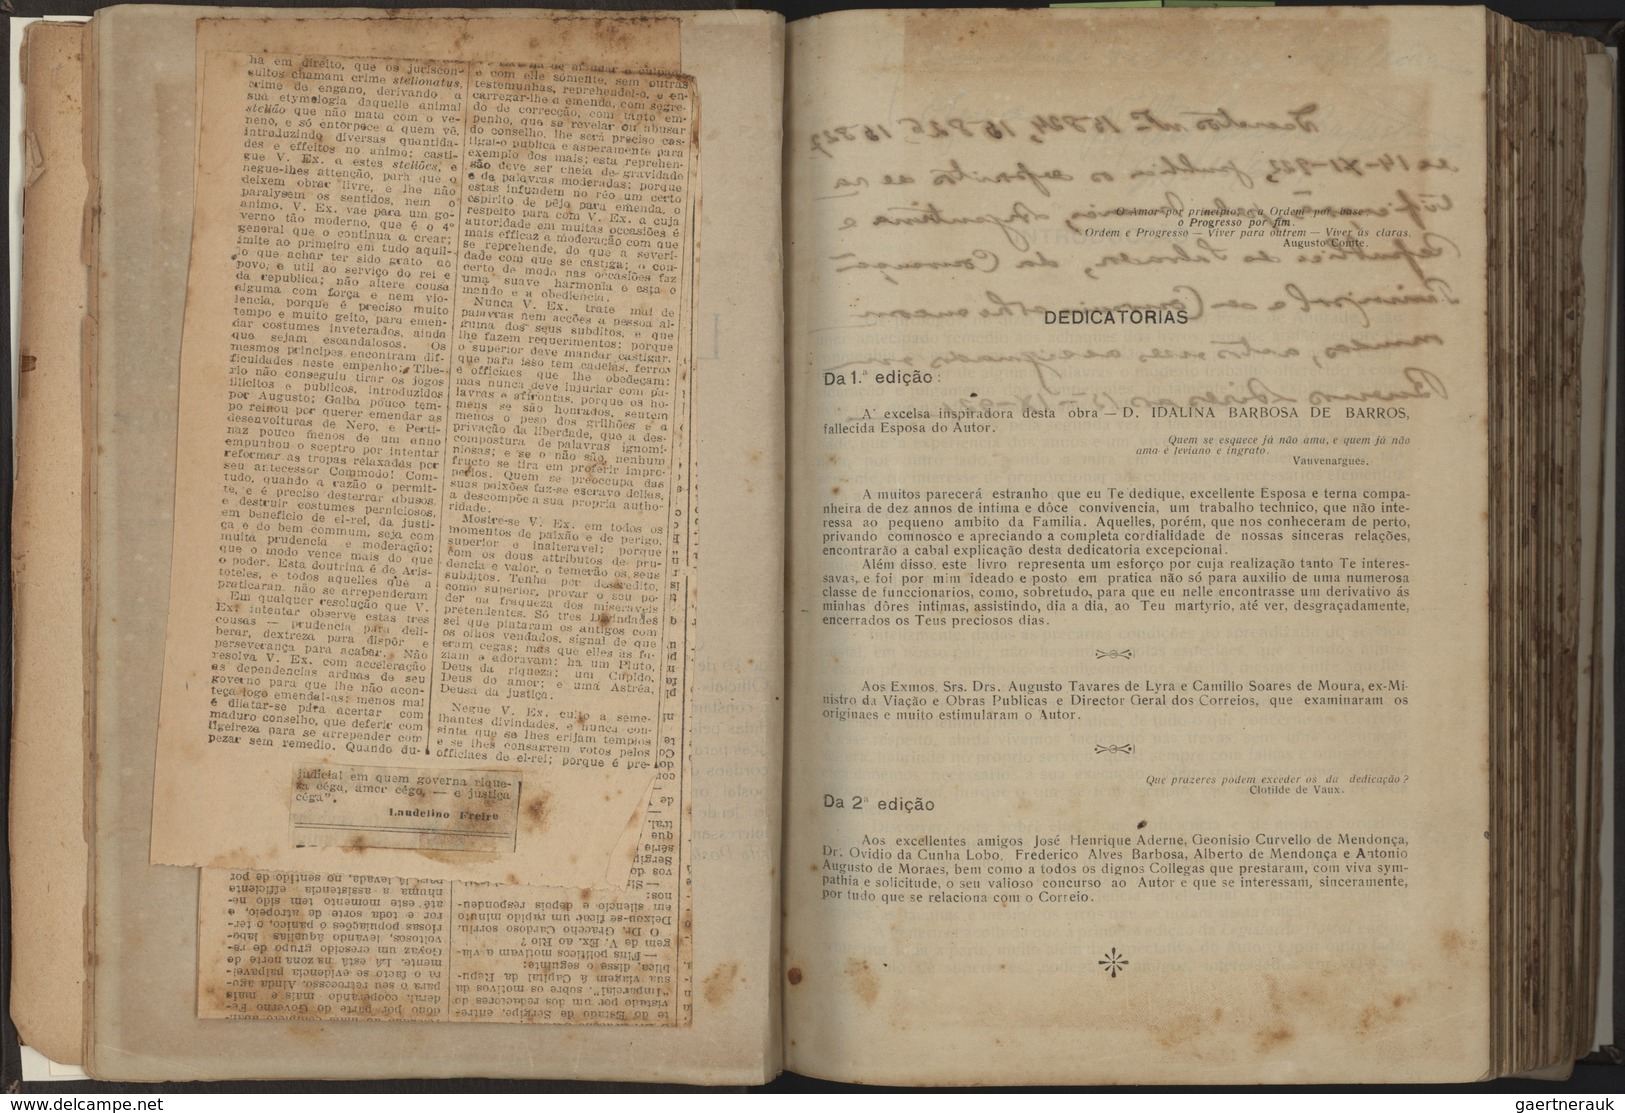 ha em direito, que os juriscon-
sultos chamam crime stelionatus,
crime de engano, derivando a
sua etymologia daquelle animal
stelião que não mata com o ve-
neno, e só entorpece a quem vê,
introduzindo diversas quantida-
des e effeitos no animo; casti-
gue V. Ex. a estes steliões, e
negue-lhes attenção, para que o
deixem obrar livre, e lhe não
paralysem os sentidos, nem o
animo. V. Ex. vae para um go-
verno tão moderno, que é o 4º
general que o continua a crear;
imite ao primeiro em tudo aquil-
lo que achar ter sido grato ao
povo, e util ao serviço do rei e
da republica; não altere cousa
alguma com força e nem vio-
lencia, porque é preciso muito
tempo e muito geito, para emen-
dar costumes inveterados, ainda
que sejam escandalosos. Os
mesmos principes encontram dif-
ficuldades neste empenho; Tibe-
rio não conseguiu tirar os jogos
illicitos e publicos, introduzidos
por Augusto; Galba pouco tem-
po reinou por querer emendar as
desenvolturas de Nero, e Perti-
naz pouco menos de um anno
empunhou o sceptro por intentar
reformar as tropas relaxadas por
seu antecessor Commodo! Com-
tudo, quando a razão o permit-
te, e é preciso desterrar abusos,
e destruir costumes perniciosos,
em beneficio de el-rei, da justi-
ça e do bem commum, seja com
muita prudencia e moderação;
que o modo vence mais do que
o poder. Esta doutrina é de Aris-
toteles, e todos aquelles que a
praticaram não se arrependeram
Em qualquer resolução que V.
Ex. intentar observe estas tres
cousas — prudencia para deli-
berar, dextreza para dispôr e
perseverança para acabar. Não
resolva V. Ex. com acceleração
as dependencias arduas de seu
governo para que lhe não acon-
teça logo emendal-as; menos mal
é dilatar-se para acertar com
maduro conselho, que deferir com
ligeireza para se arrepender com
pezar sem remedio. Quando du-
e com elle sómente, sem outras
testemunhas, reprehendel-o, e en-
carregar-lhe a emenda, com segre-
do de correcção, com tanto em-
penho, que se revelar ou abusar
do conselho, lhe será preciso cas-
tigal-o publica e asperamente para
exemplo dos mais; esta reprehen-
são deve ser cheia de gravidade
e de palavras moderadas; porque
estas infundem no réo um certo
espirito de pêjo para emenda, o
respeito para com V. Ex. a cuja
autoridade em muitas occasiões é
mais efficaz a moderação com que
se reprehende, do que a severi-
dade com que se castiga; o con-
certo de modo nas occasiões faz
uma suave harmonia e esta o
mando e a obediencia.
Nunca V. Ex. trate mal de
palavras nem acções a pessoa al-
guma dos seus subditos, e que
lhe fazem requerimentos; porque
o superior deve mandar castigar,
que para isso tem cadeias, ferros
e officiaes que lhe obedeçam;
mas nunca deve injuriar com pa-
lavras e affrontas, porque os ho-
mens se são honrados, sentem
menos o peso dos grilhões e a
privação da liberdade, que a des-
compostura de palavras ignomi-
niosas; e se o não são, nenhum
fructo se tira em proferir impro-
perios. Quem se preoccupa das
suas paixões faz-se escravo dellas,
a descompõe a sua propria autho-
ridade.
Mostre-se V. Ex. em todos os
momentos de paixão e de perigo,
superior e inalteravel; porque
com os dous attributos de pru-
dencia e valor, o temerão os seus
subditos. Tenha por descredito,
como superior, provar o seu po-
der na fraqueza dos miseraveis
pretendentes. Só tres Divindades
sei que pintaram os antigos com
os olhos vendados, signal de que
eram cegas; mas que elles as fa-
ziam e adoravam: ha um Pluto,
Deus da riqueza; um Cupido,
Deus do amor; e uma Astréa,
Deusa da justiça.
Negue V. Ex. culto a seme-
lhantes divindades, e nunca con-
sinta que se lhes erijam templos
e se lhes consagrem votos pelos
officiaes de el-rei; porque é pre-
judicial em quem governa rique-
za céga, amor cégo, — e justiça
céga".
Laudelino Freire
te do Estado de Sergipe, entre-
vistado por um dos redactores do
"Imparcial", sobre os motivos da
sua viagem á Capital da Repu-
blica, disse o seguinte:
— Fins politicos motivam a via-
gem de V. Ex. ao Rio ?
O Dr. Graccho Cardoso sorriu.
Deixou-se ficar um rapido minuto
em silencio e depois responden-
nos:
dono por parte do Governo Fe-
deral, cooperando mais e mais
para o seu retrocesso. Ainda ago-
ra o facto se evidencia palpavel-
mente. Lá está na zona norte de
Goyaz um crescido grupo de re-
voltosos, levando áquellas labo-
riosas populações o panico, o ter-
ror e toda sorte de atropelo, e
até este momento tem sido ne-
nhuma a assistencia efficiente
para lá levada, no sentido de por
O Amor por principio, e a Ordem por base
o Progresso por fim.
Ordem e Progresso — Viver para outrem — Viver ás claras.
Augusto Comte.
DEDICATORIAS
Da 1.ª edição:
A' excelsa inspiradora desta obra — D. IDALINA BARBOSA DE BARROS,
fallecida Esposa do Autor.
Quem se esquece já não ama, e quem já não
ama é leviano e ingrato.
Vauvenargues.
A muitos parecerá estranho que eu Te dedique, excellente Esposa e terna compa-
nheira de dez annos de intima e dôce convivencia, um trabalho technico, que não inte-
ressa ao pequeno ambito da Familia. Aquelles, porém, que nos conheceram de perto,
privando comnosco e apreciando a completa cordialidade de nossas sinceras relações,
encontrarão a cabal explicação desta dedicatoria excepcional.
Além disso, este livro representa um esforço por cuja realização tanto Te interes-
savas, e foi por mim ideado e posto em pratica não só para auxilio de uma numerosa
classe de funccionarios, como, sobretudo, para que eu nelle encontrasse um derivativo ás
minhas dôres intimas, assistindo, dia a dia, ao Teu martyrio, até ver, desgraçadamente,
encerrados os Teus preciosos dias.
Aos Exmos. Srs. Drs. Augusto Tavares de Lyra e Camillo Soares de Moura, ex-Mi-
nistro da Viação e Obras Publicas e Director Geral dos Correios, que examinaram os
originaes e muito estimularam o Autor.
Que prazeres podem exceder os da dedicação?
Clotilde de Vaux.
Da 2ª edição
Aos excellentes amigos José Henrique Aderne, Geonisio Curvello de Mendonça,
Dr. Ovidio da Cunha Lobo, Frederico Alves Barbosa, Alberto de Mendonça e Antonio
Augusto de Moraes, bem como a todos os dignos Collegas que prestaram, com viva sym-
pathia e solicitude, o seu valioso concurso ao Autor e que se interessam, sinceramente,
por tudo que se relaciona com o Correio.
www.delcampe.net
gaertnerauk